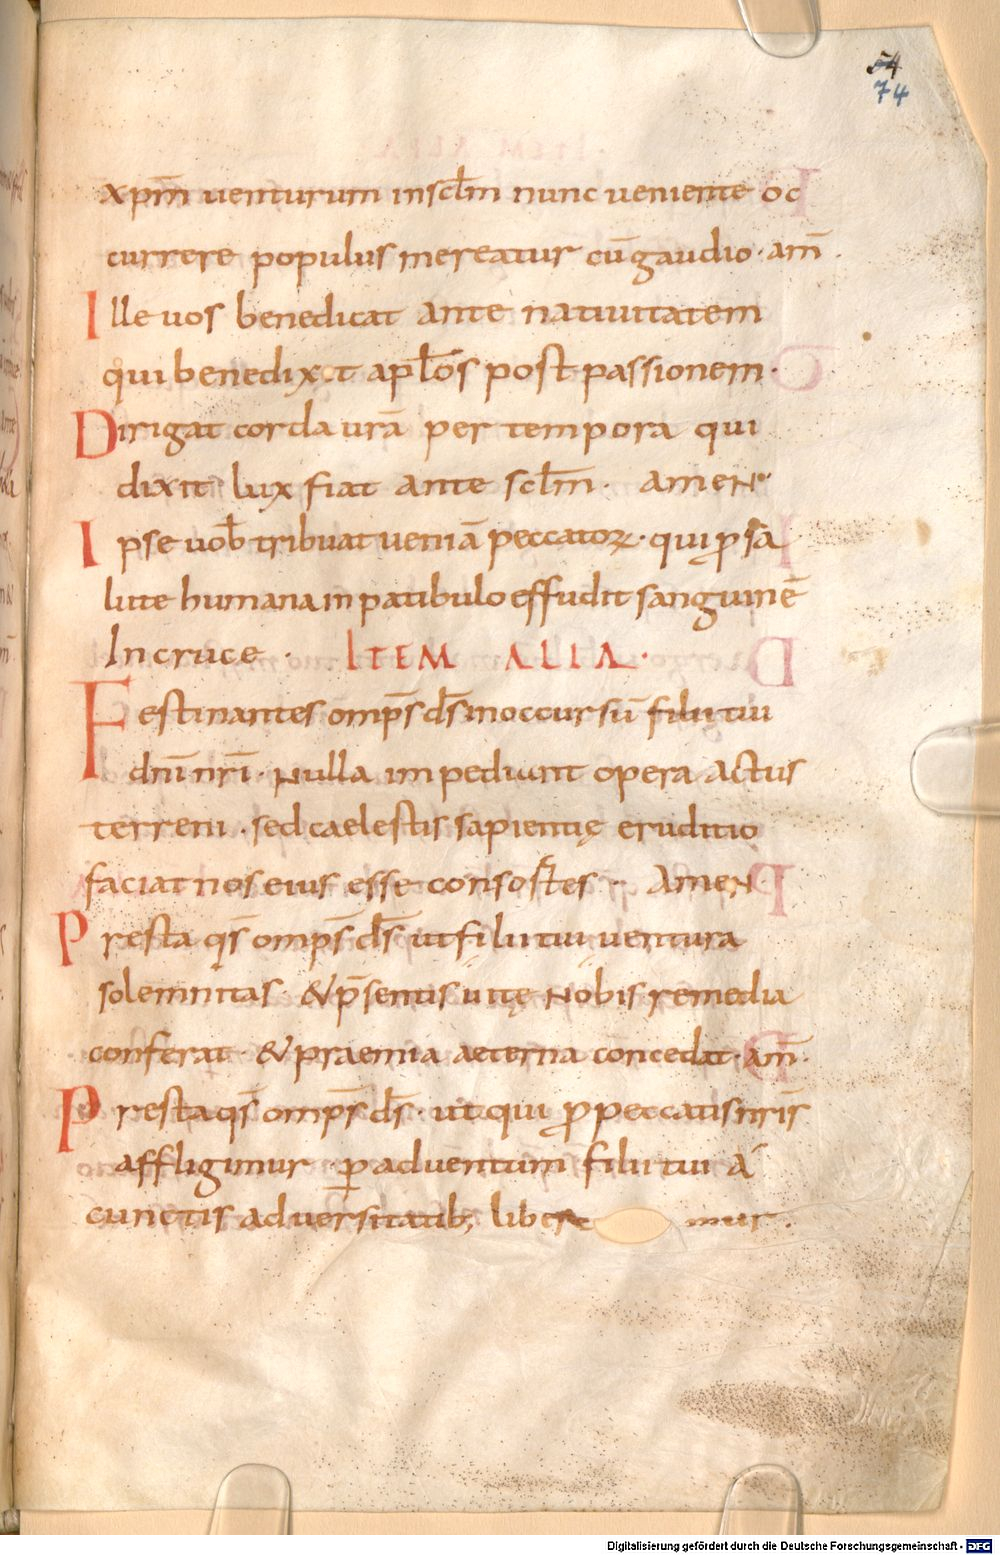 54
74
xpm̄ venturum in scl̄m nunc veniente oc
currere populus mereatur cū gaudio · am̄ .
Ille uos benedicat ante natiuitatem
qui benedix.t apl̄os post passionem ·
Dirigat corda urā per tempora qui
dixit lux fiat ante scl̄m · ameN
Ipse uob̄ tribuat ueniā peccatoꝝ · qui ꝓ sā
lute humana in patibulo effudit sanguinē
In cruce · ITEM ALIA ·
Festinantes omp̄s ds̄ in occursū filii tui
dn̄i nr̄i · Nulla impediunt opera actus
terreni · sed caelestis sapientię eruditio
faciat nos eius esse consostes · AmeN
Presta qs̄ omp̄s ds̄ ut filii tui uentura
solemnitas · & p̄sentis uitę Nobis remedia
conferat · & praemia aeterna concedat · am̄ ·
Presta qs̄ omp̄s ds̄ · ut qui ꝓ peccatis nr̄is
affligimur · ꝑ aduentum filii tui a
cunctis aduersitatib; libere mur .
Digitalisierung gefördert durch die Deutsche Forschungsgemeinschaft - DFG